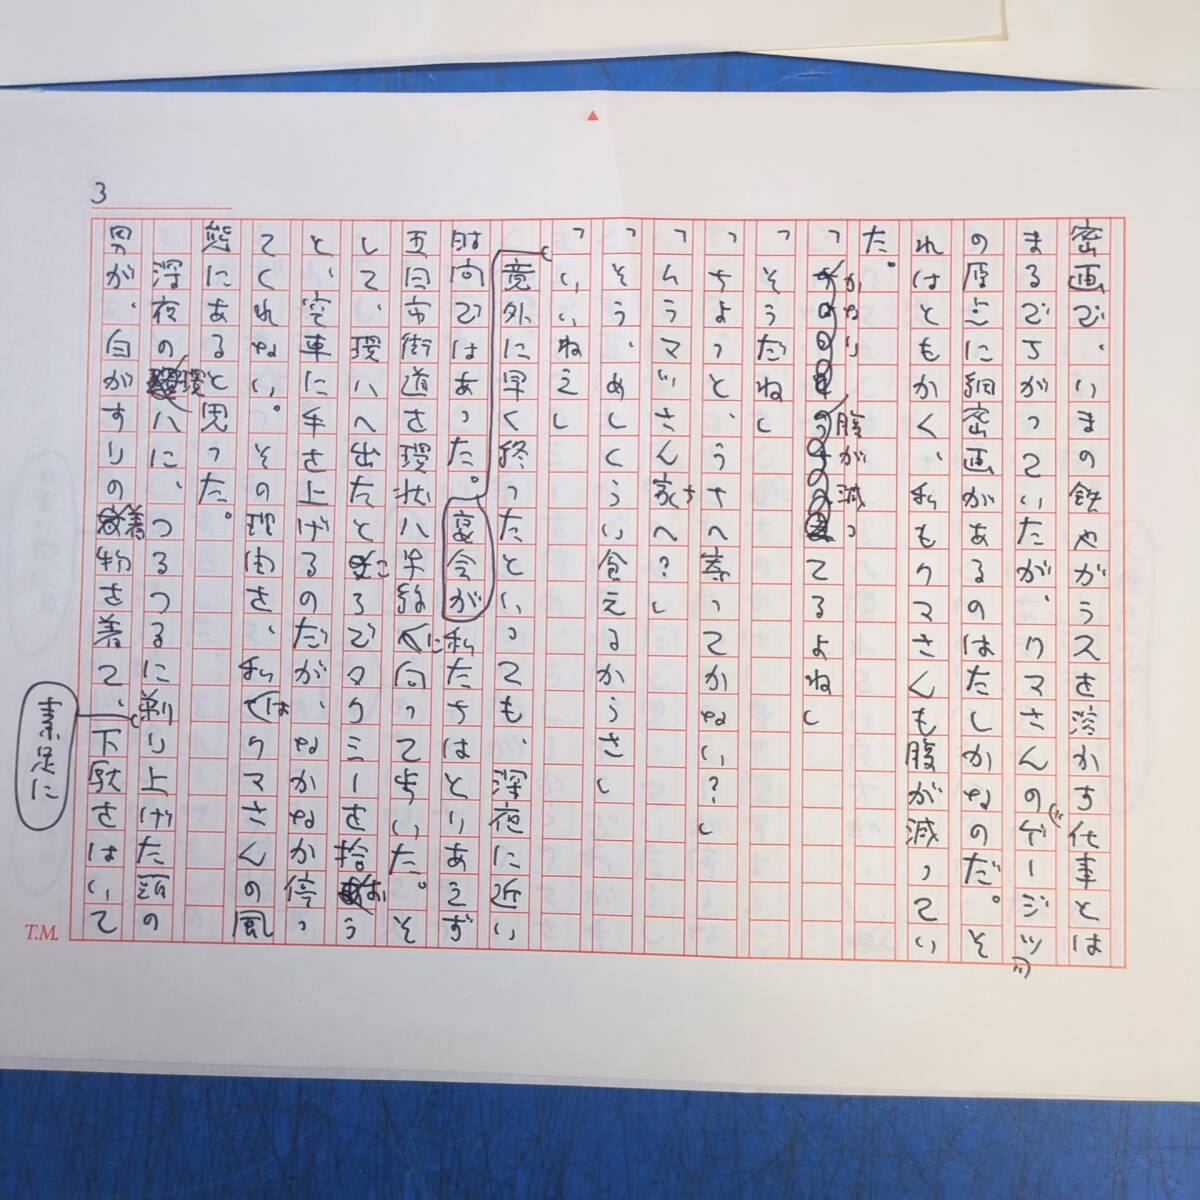 3
密画で、いまの鉄やガラスを溶かす仕事とは
まるでちがっていたが、クマさんの〝ゲージツ〟
の原点に細密画があるのはたしかなのだ。そ
れはともかく、私もクマさんも腹が減ってい
た。
「かなり腹が減ってるよね」
「そうだね」
「ちょっと、うさへ寄ってかない?」
「ムラマツさん家へ?」
「そう、めしくらい食えるからさ」
「いいねえ」
宴会が意外に早く終ったといっても、深夜に近い
時間ではあった。私たちはとりあえず
五日市街道を環状八号線に向って歩いた。そ
して、環八へ出たところでタクシーを拾おう
と、空車に手を上げるのだが、なかなか停っ
てくれない。その理由を、私はクマさんの風
態にあると思った。
深夜の環八に、つるつるに剃り上げた頭の
男が、白がすりの着物を着て、素足に下駄をはいて
T.M.